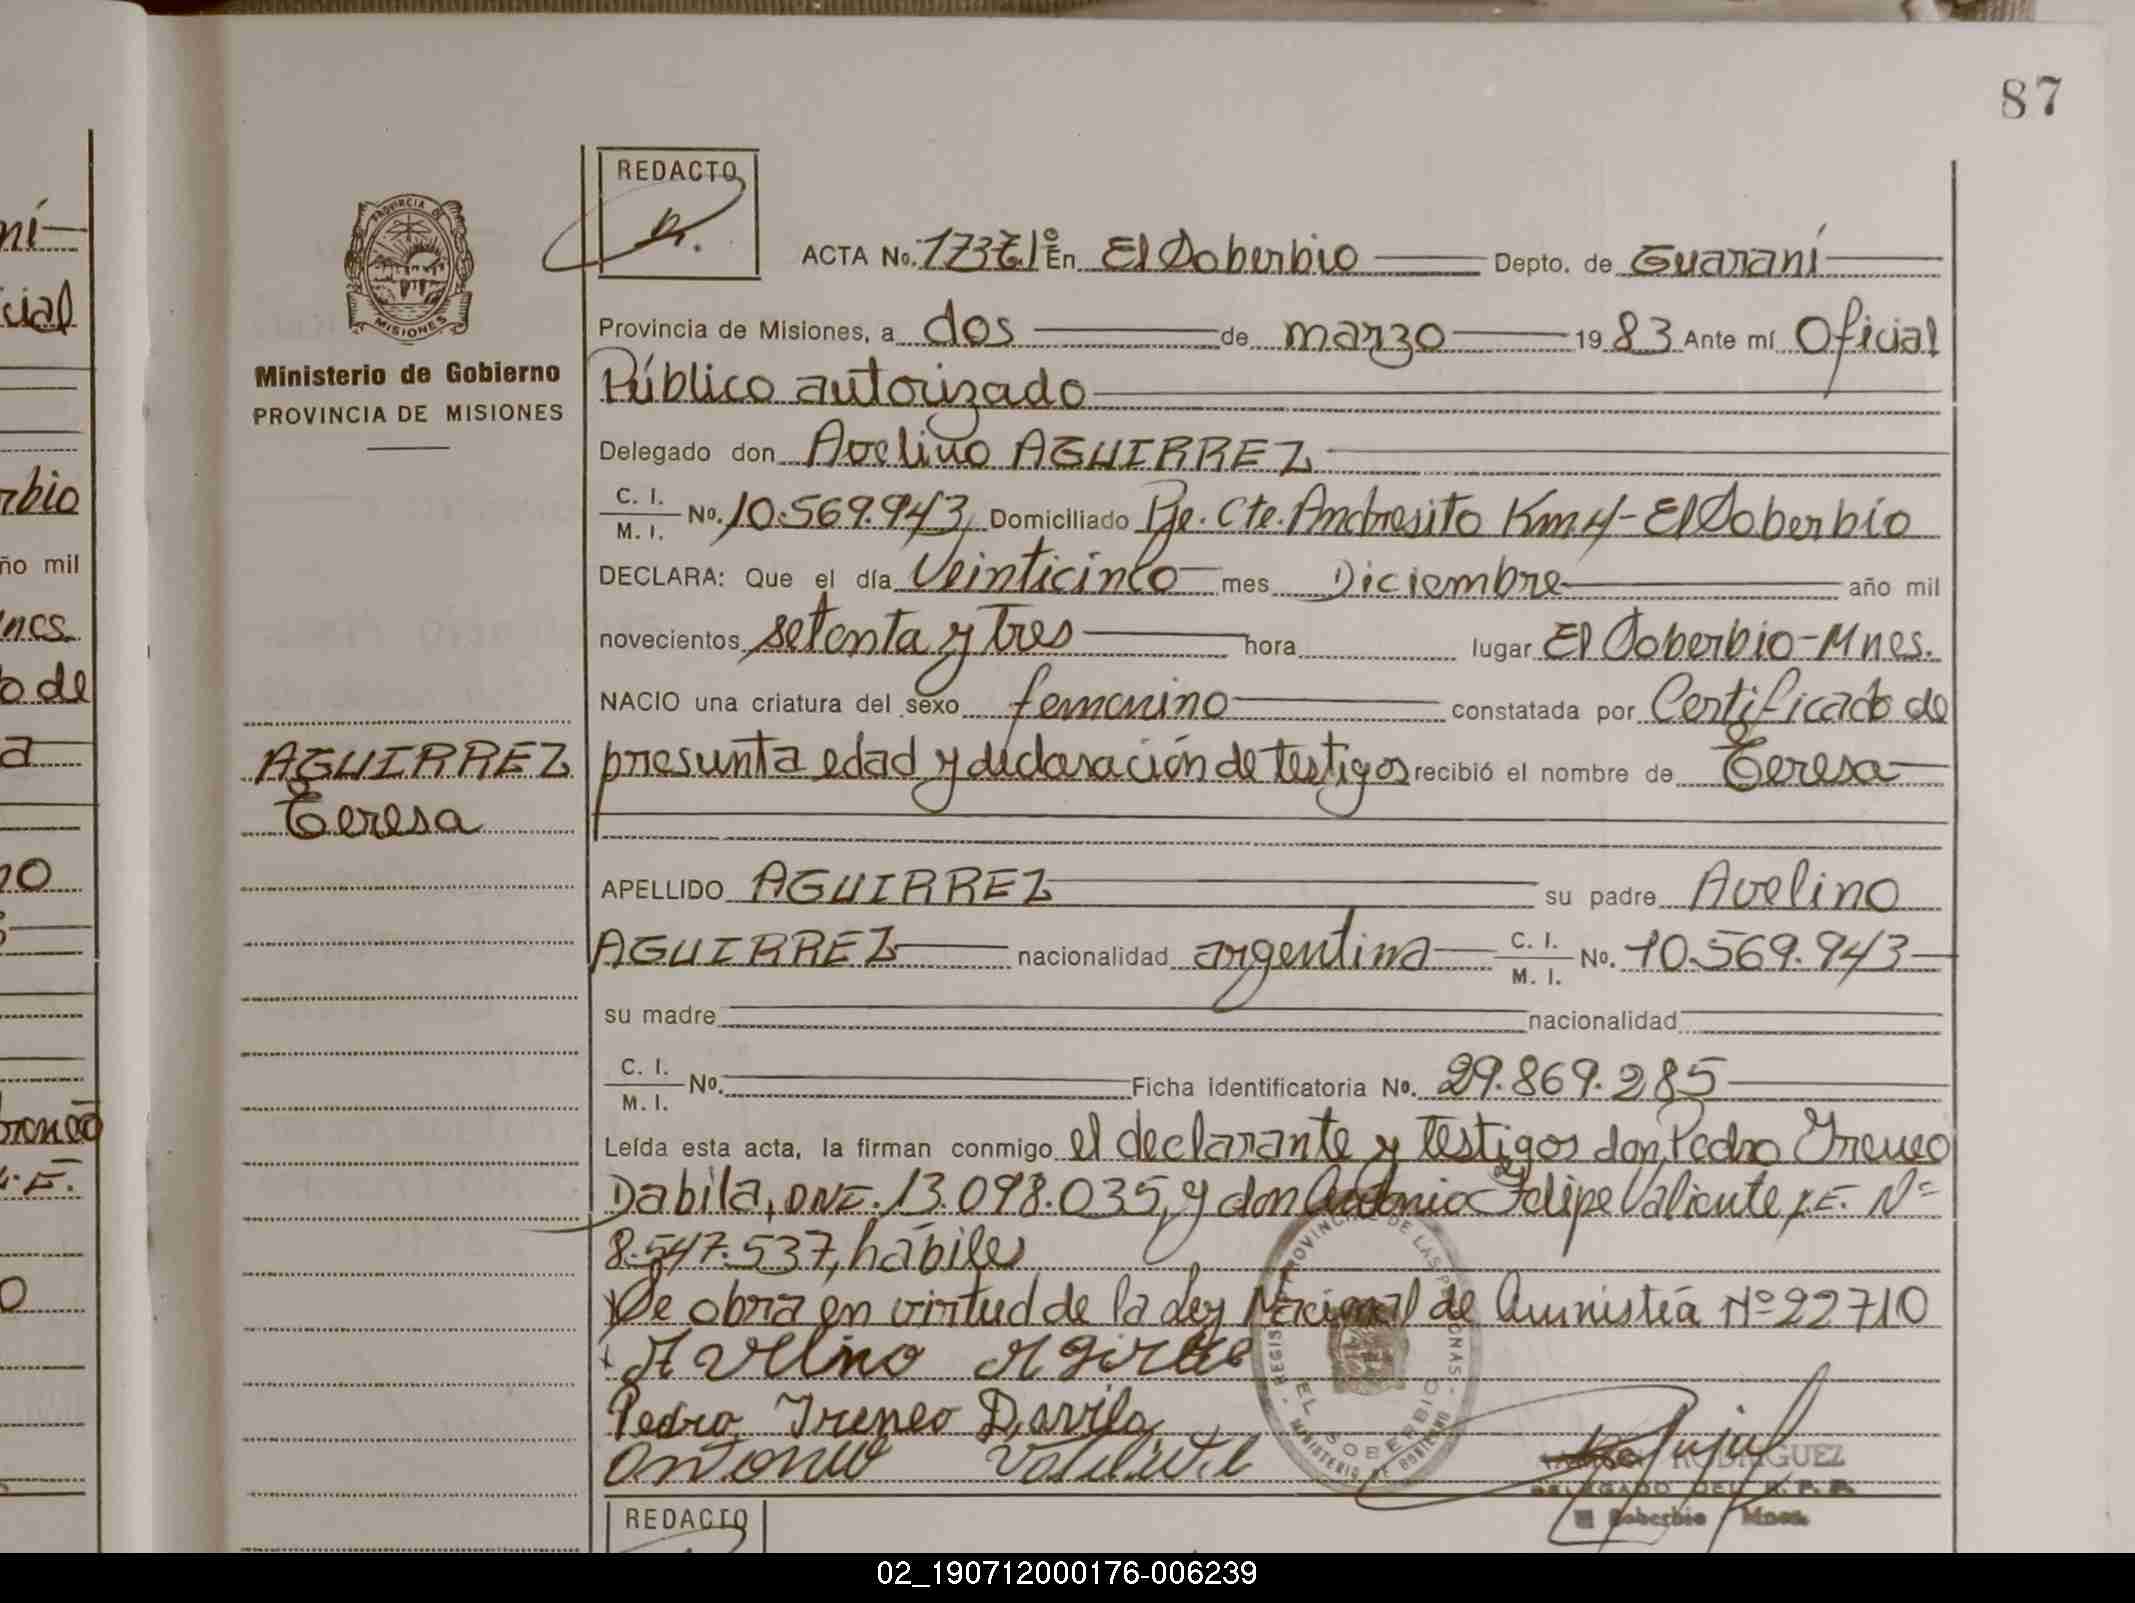 87
REDACTO
PROVINCIA DE
MISIONES
Ministerio de Gobierno
PROVINCIA DE MISIONES
ACTA No. 173 T.1º En El Soberbio Depto. de Guaraní
Provincia de Misiones, a dos de marzo 1983 Ante mí Oficial
Público autorizado
Delegado don Avelino AGUIRREZ
C. I.
M. I. No. 10.569.943, Domiciliado Pje. Cte. Andresito Km.4-El Soberbio
DECLARA: Que el día Veinticinco mes Diciembre año mil
novecientos setenta y tres hora lugar El Soberbio-Mnes.
NACIO una criatura del sexo femenino constatada por Certificado de
presunta edad y declaración de testigos recibió el nombre de Teresa
AGUIRREZ
Teresa
APELLIDO AGUIRREZ su padre Avelino
AGUIRREZ nacionalidad argentina C. I.
M. I. No. 10.569.943
su madre nacionalidad
C. I.
M. I. No. Ficha identificatoria No. 29.869.285
Leída esta acta, la firman conmigo el declarante y testigos don Pedro Ireneo
Dabila, DNI. 13.098.035, y don Antonio Felipe Valiente L.E. Nº
8.547.537, hábiles
Se obra en virtud de la Ley Nacional de Amnistía Nº 22710
Avelino
Pedro Ireneo Davila
Antonio
REGIS PROVINCIAL DE LAS PERSONAS
EL SOBERBIO
MINISTERIO DE GOBIERNO
RODRIGUEZ
DELEGADO DEL R. P. P.
El Soberbio Mnes.
REDACTO
ní
cial
rbio
ño mil
nes.
o de
a
no
L.E.
o
02_190712000176-006239